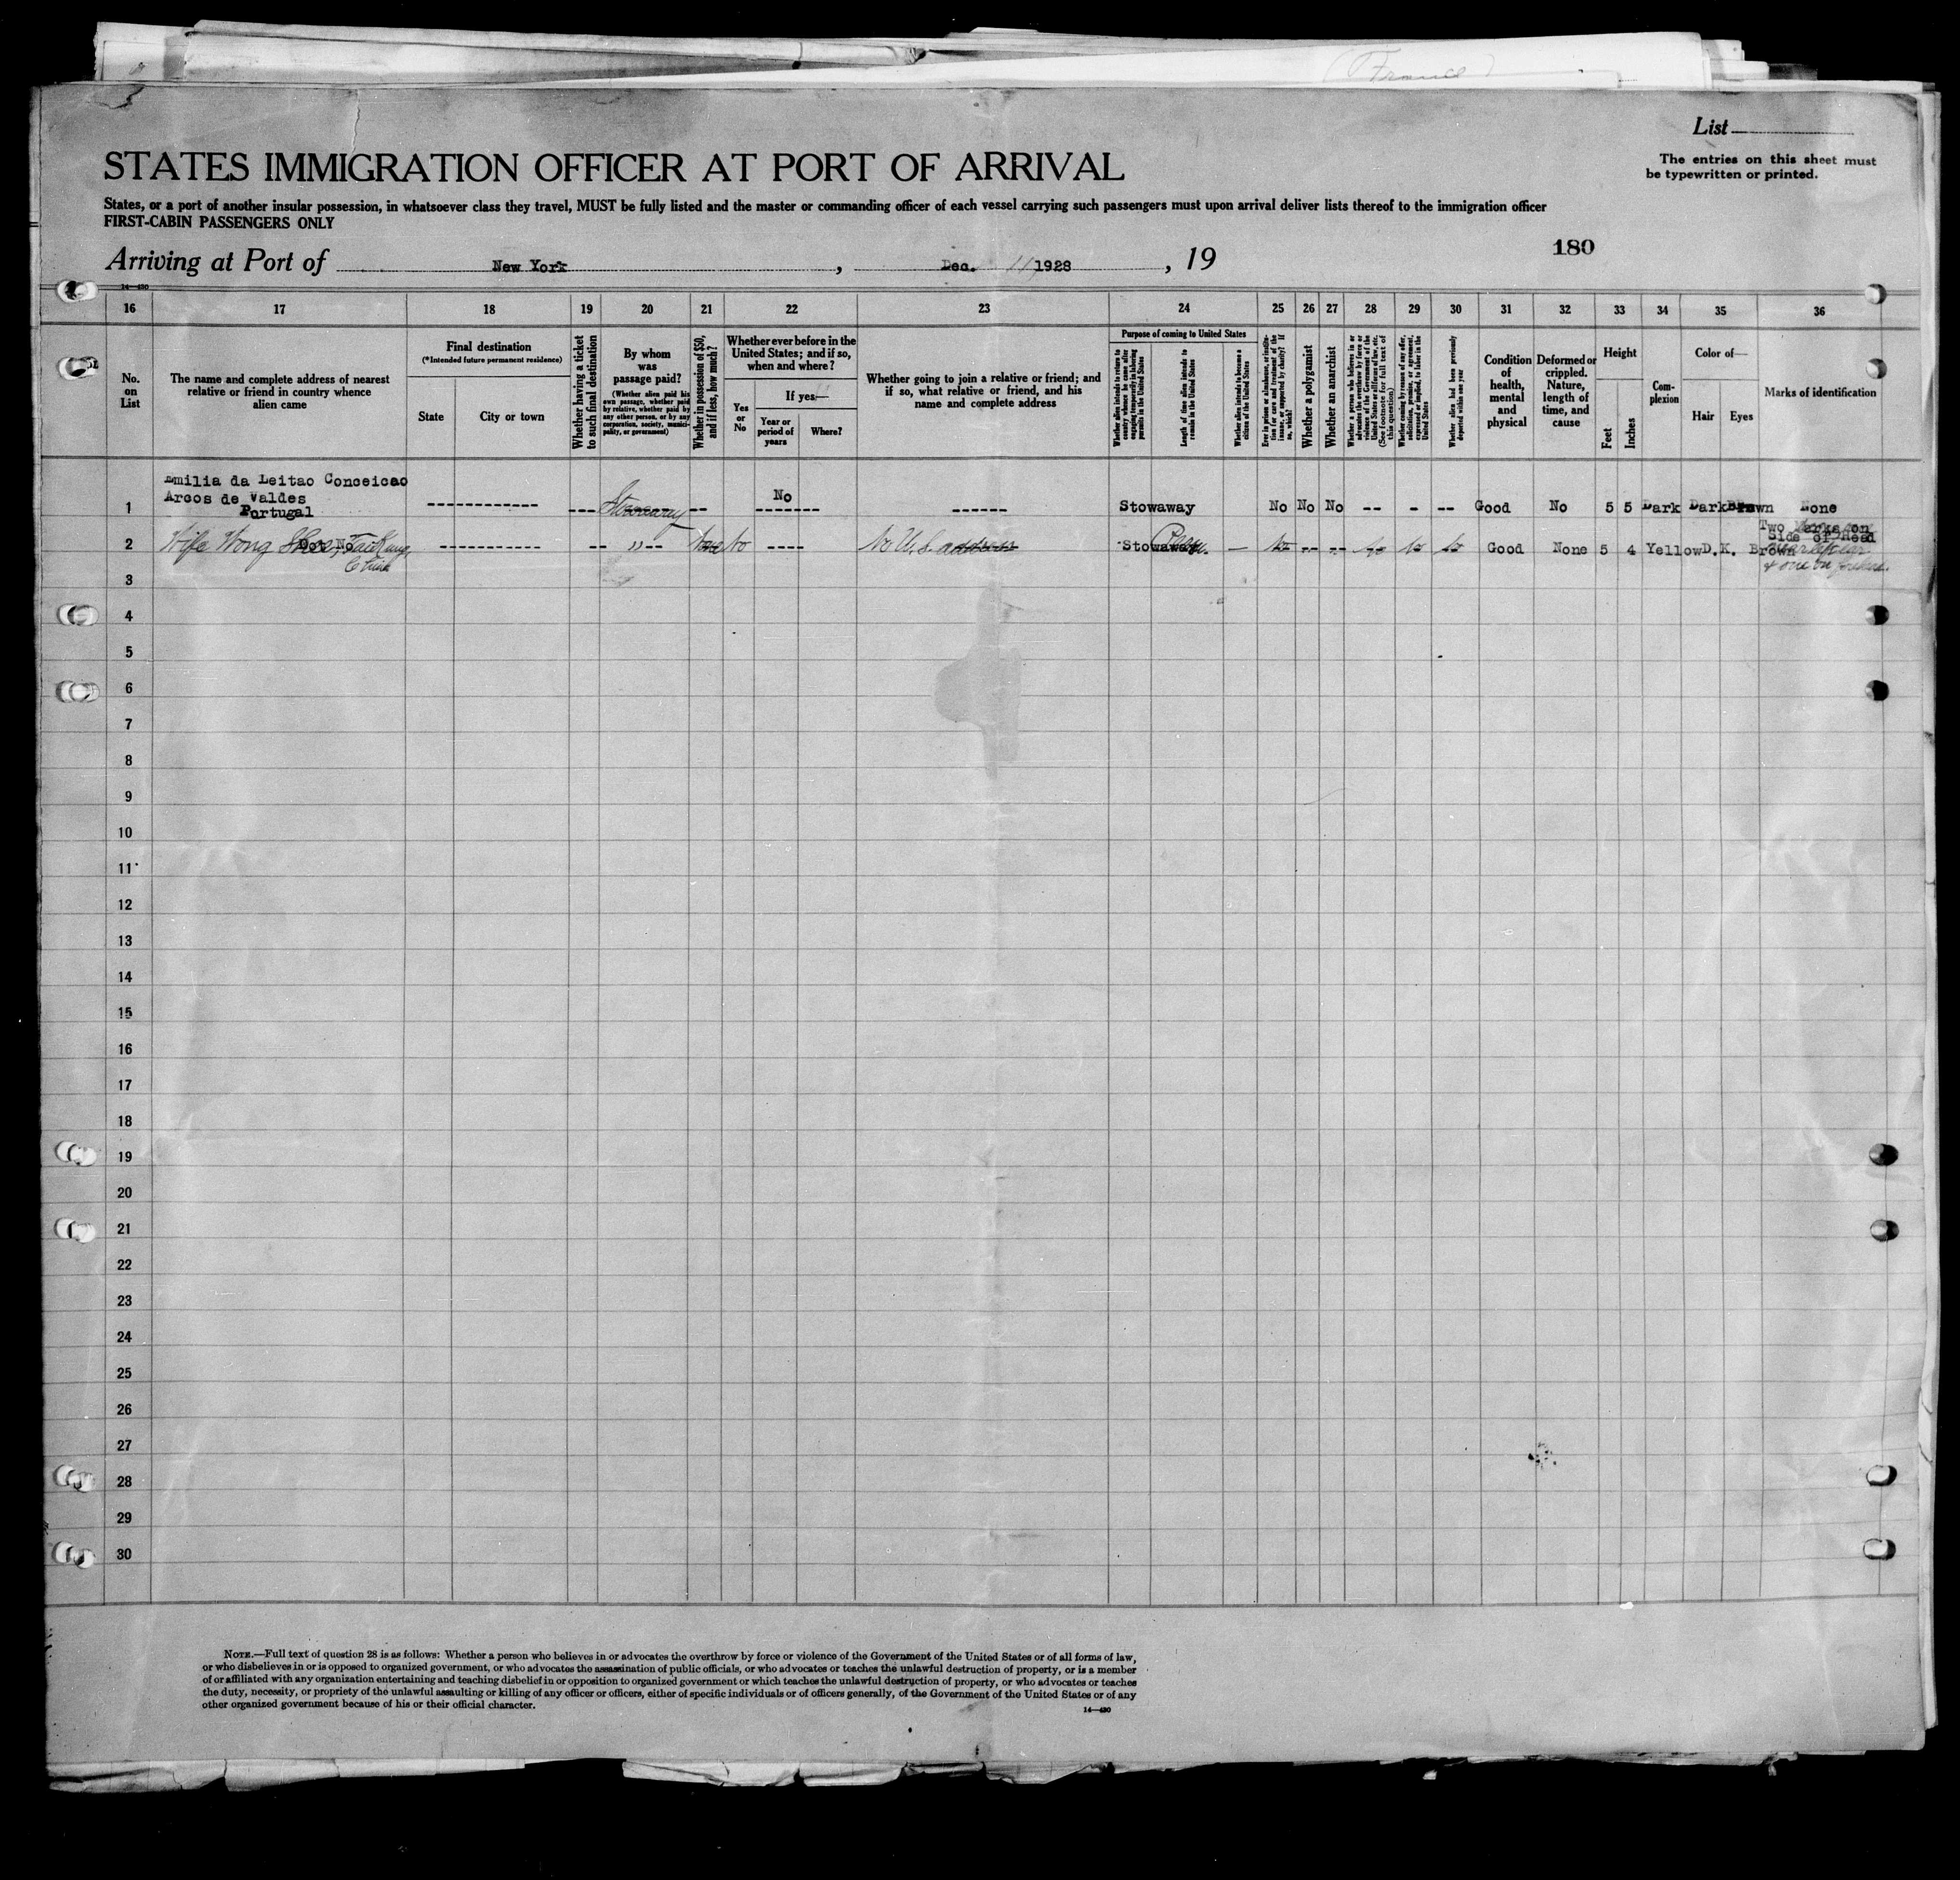 (France)
List
STATES IMMIGRATION OFFICER AT PORT OF ARRIVAL
The entries on this sheet must
be typewritten or printed.
States, or a port of another insular possession, in whatsoever class they travel, MUST be fully listed and the master or commanding officer of each vessel carrying such passengers must upon arrival deliver lists thereof to the immigration officer
FIRST-CABIN PASSENGERS ONLY
Arriving at Port of New York, Dec. 11, 1928, 19
180
14—430
16 17 18 19 20 21 22 23 24 25 26 27 28 29 30 31 32 33 34 35 36
No.
on
List
The name and complete address of nearest
relative or friend in country whence
alien came
Final destination
(*Intended future permanent residence)
State
City or town
Whether having a ticket
to such final destination
By whom
was
passage paid?
(Whether alien paid his
own passage, whether paid
by relative, whether paid by
any other person, or by any
corporation, society, munici-
pality, or government)
Whether in possession of $50,
and if less, how much?
Whether ever before in the
United States; and if so,
when and where?
Yes
or
No
If yes—
Year or
period of
years
Where?
Whether going to join a relative or friend; and
if so, what relative or friend, and his
name and complete address
Purpose of coming to United States
Whether alien intends to return to
country whence he came after
engaging temporarily in laboring
pursuits in the United States
Length of time alien intends to
remain in the United States
Whether alien intends to become a
citizen of the United States
Ever in prison or almshouse, or institu-
tion for care and treatment of the
insane, or supported by charity? If
so, which?
Whether a polygamist
Whether an anarchist
Whether a person who believes in or
advocates the overthrow by force or
violence of the Government of the
United States or all forms of law, etc.
(See footnote for full text of
this question)
Whether coming by reason of any offer,
solicitation, promise, or agreement,
expressed or implied, to labor in the
United States
Whether alien had been previously
deported within one year
Condition
of
health,
mental
and
physical
Deformed or
crippled.
Nature,
length of
time, and
cause
Height
Feet
Inches
Com-
plexion
Color of—
Hair
Eyes
Marks of identification
Emilia da Leitao Conceicao
Arcos de Valdes
Portugal
1 Stowaway No Stowaway No No No Good No 5 5 Dark Dark Brown None
2 Wife Wong Shee, China " None No No U.S. address Stowaway No No No No Good None 5 4 Yellow D.K. Brown Two Marks on
Side of Head
3
4
5
6
7
8
9
10
11
12
13
14
15
16
17
18
19
20
21
22
23
24
25
26
27
28
29
30
NOTE.—Full text of question 28 is as follows: Whether a person who believes in or advocates the overthrow by force or violence of the Government of the United States or of all forms of law,
or who disbelieves in or is opposed to organized government, or who advocates the assassination of public officials, or who advocates or teaches the unlawful destruction of property, or is a member
of or affiliated with any organization entertaining and teaching disbelief in or opposition to organized government or which teaches the unlawful destruction of property, or who advocates or teaches
the duty, necessity, or propriety of the unlawful assaulting or killing of any officer or officers, either of specific individuals or of officers generally, of the Government of the United States or of any
other organized government because of his or their official character.
14—430